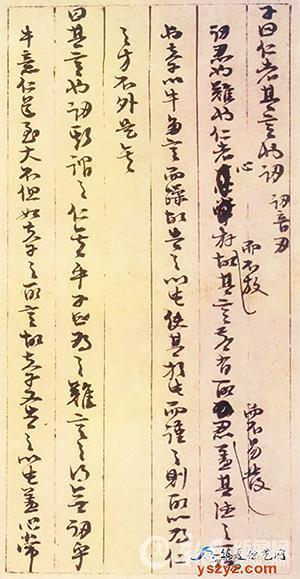 子曰仁者其言也訒 訒音刃
訒忍也難也仁者心存而不放故其言若有所忍而不易發蓋其德之一端
也夫子以牛多言而躁故告之以此使其於此而謹之則所以為仁
之方不外是矣
曰其言也訒斯謂之仁矣乎子曰為之難言之得無訒乎
牛意仁道至大不但如夫子之所言故夫子又告之以此蓋心常
yszyz.com